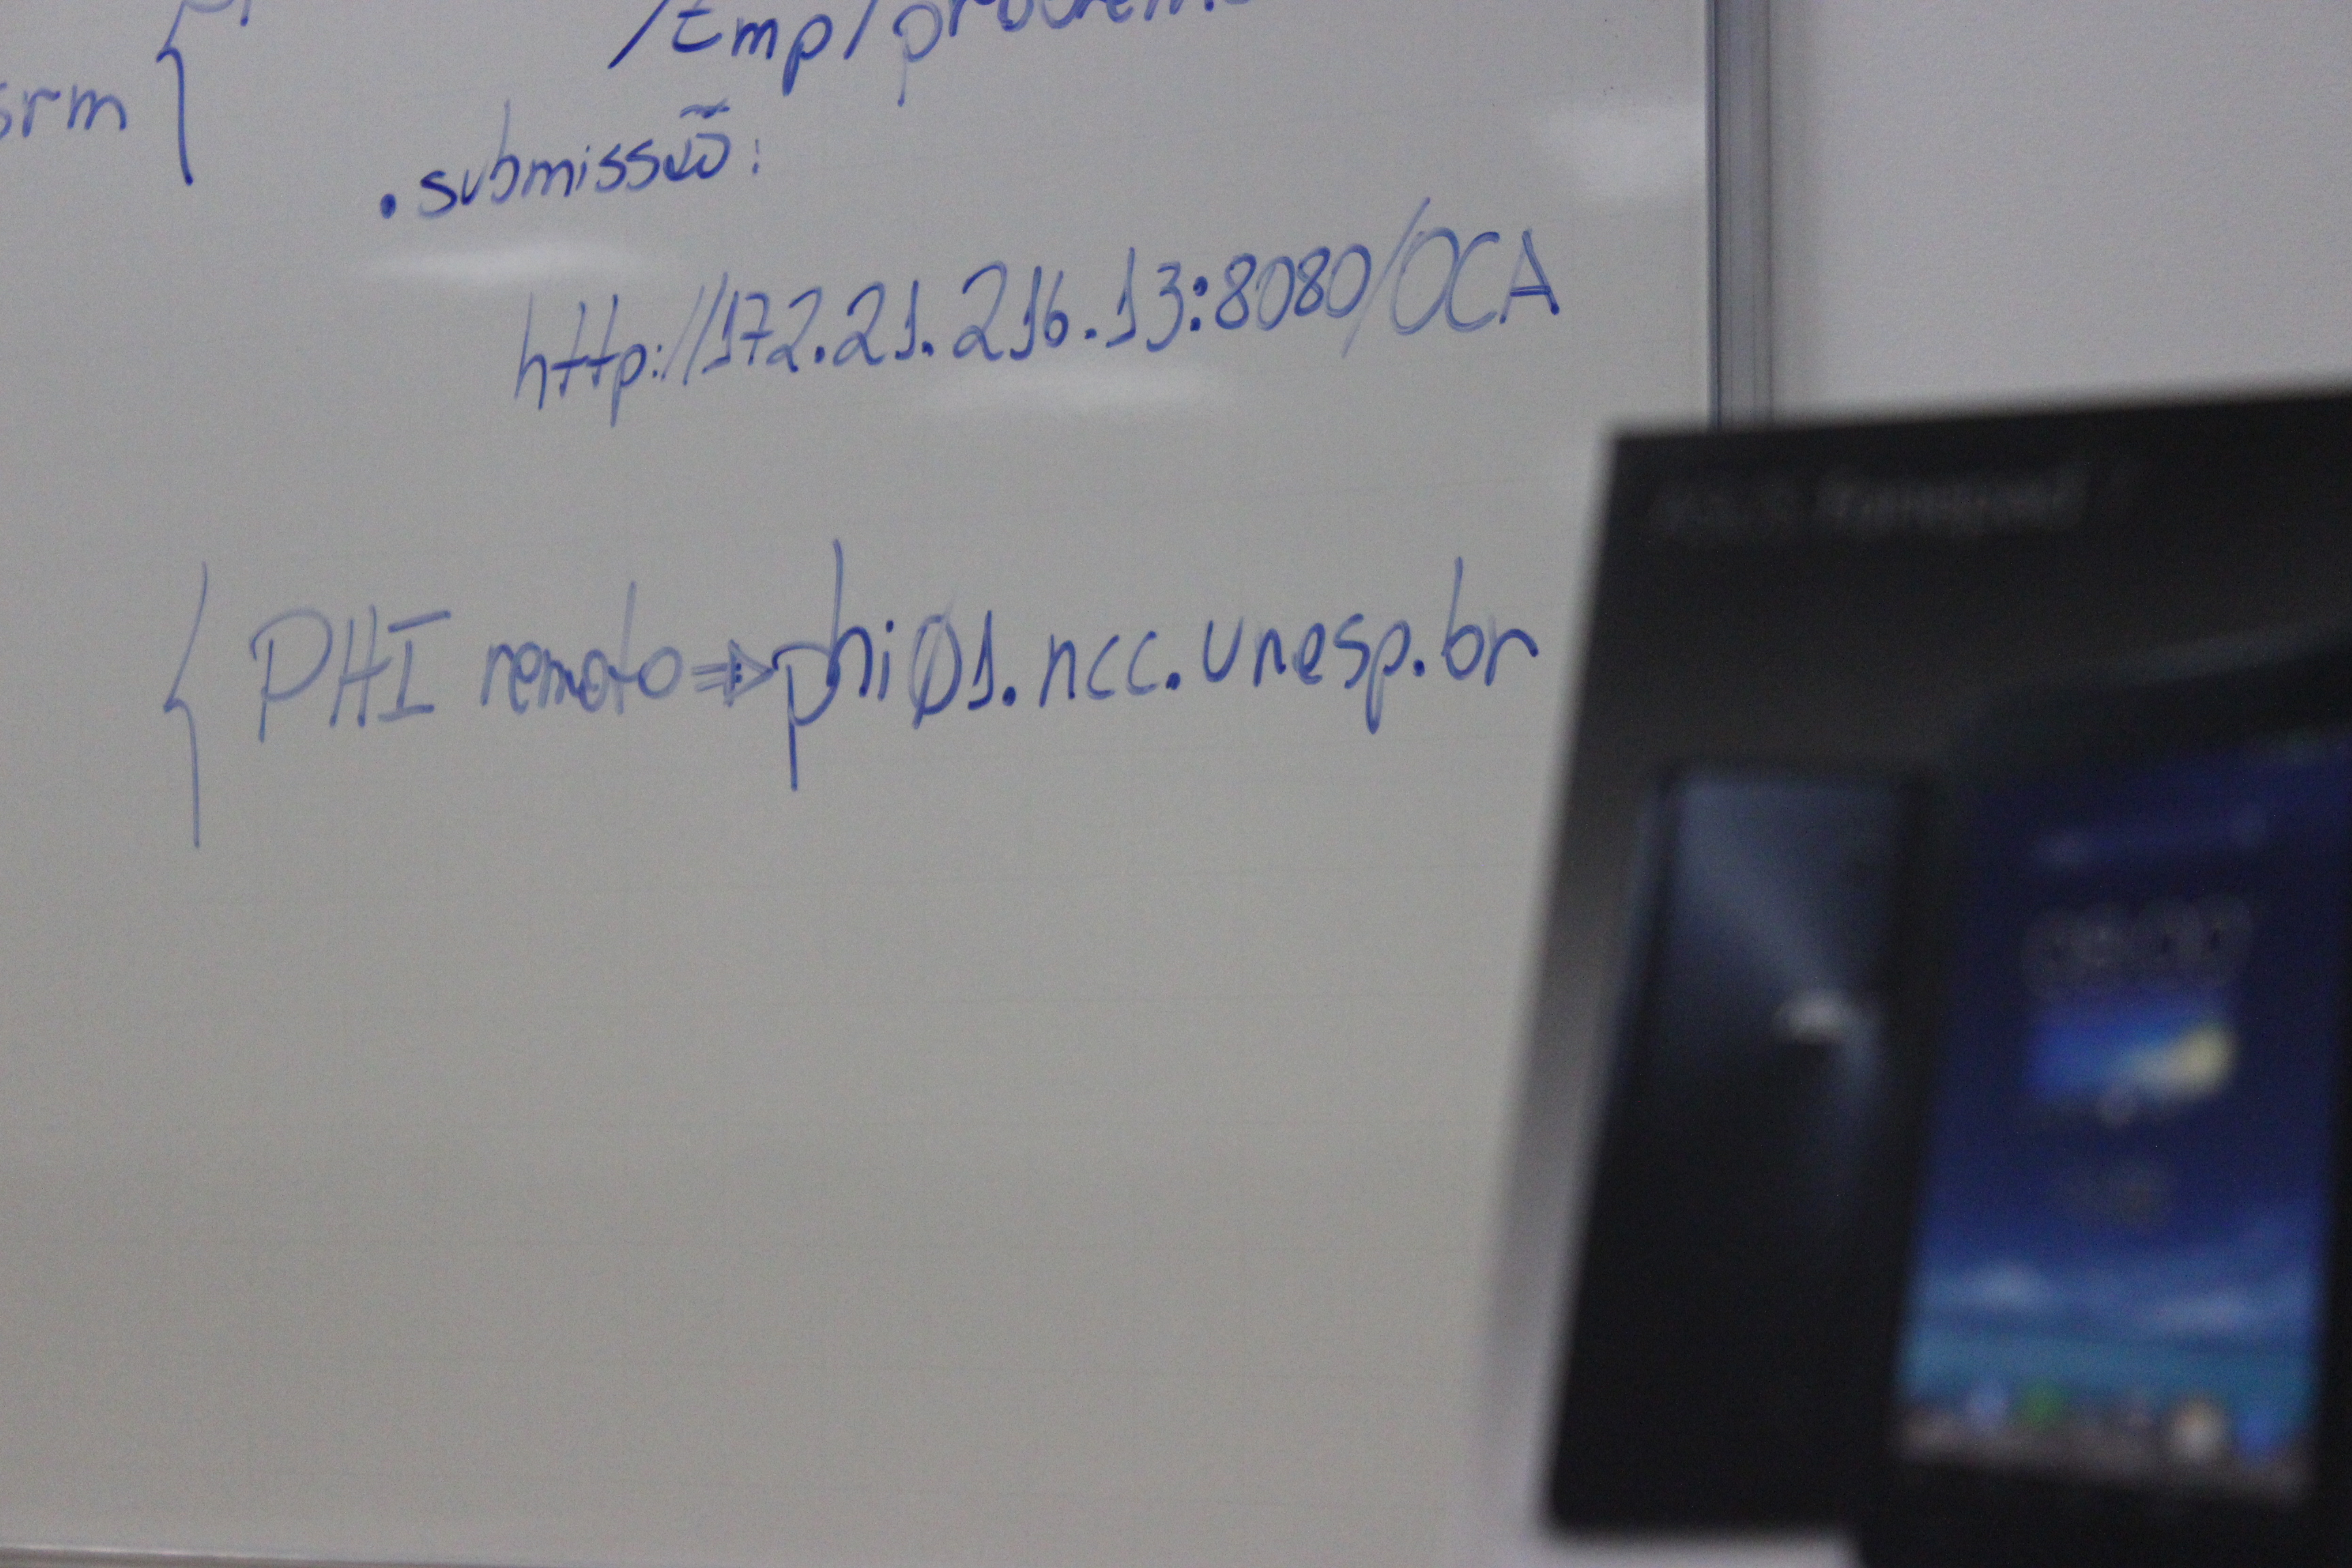 /tmp/
srm {
. submissão:
http://172.21.216.13:8080/OCA
{ PHI remoto => phi01.ncc.unesp.br